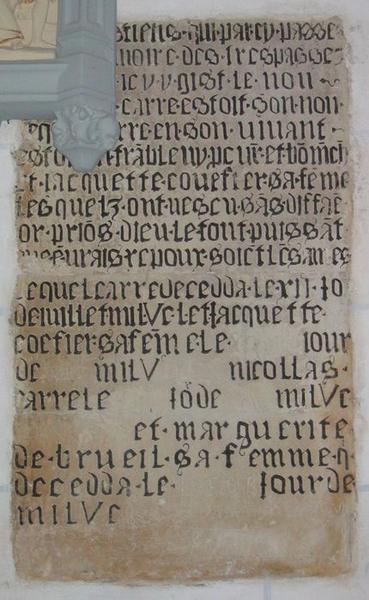 stiens · qui · par cy · passe
moire · des · trespasse
icy · v · gist · le · non
carre · estoit · son · non
carre en son · uiuant
Et · iacquette · couefier · sa · fēme
lesquelz · ont · uescu · sās · diffae
or · priōs · dieu · le · tout · puissāt
lequel carre decedda · le · xii · Jo
de iuillet mil Vc · let Jacquette ·
coefier · sa fem̄e le · iour
de mil V nicollas ·
carre le Jo de mil Vc
et · marguerite
de · brueil · sa · femme · q̄
decedda · le · Jour de
mil Vc